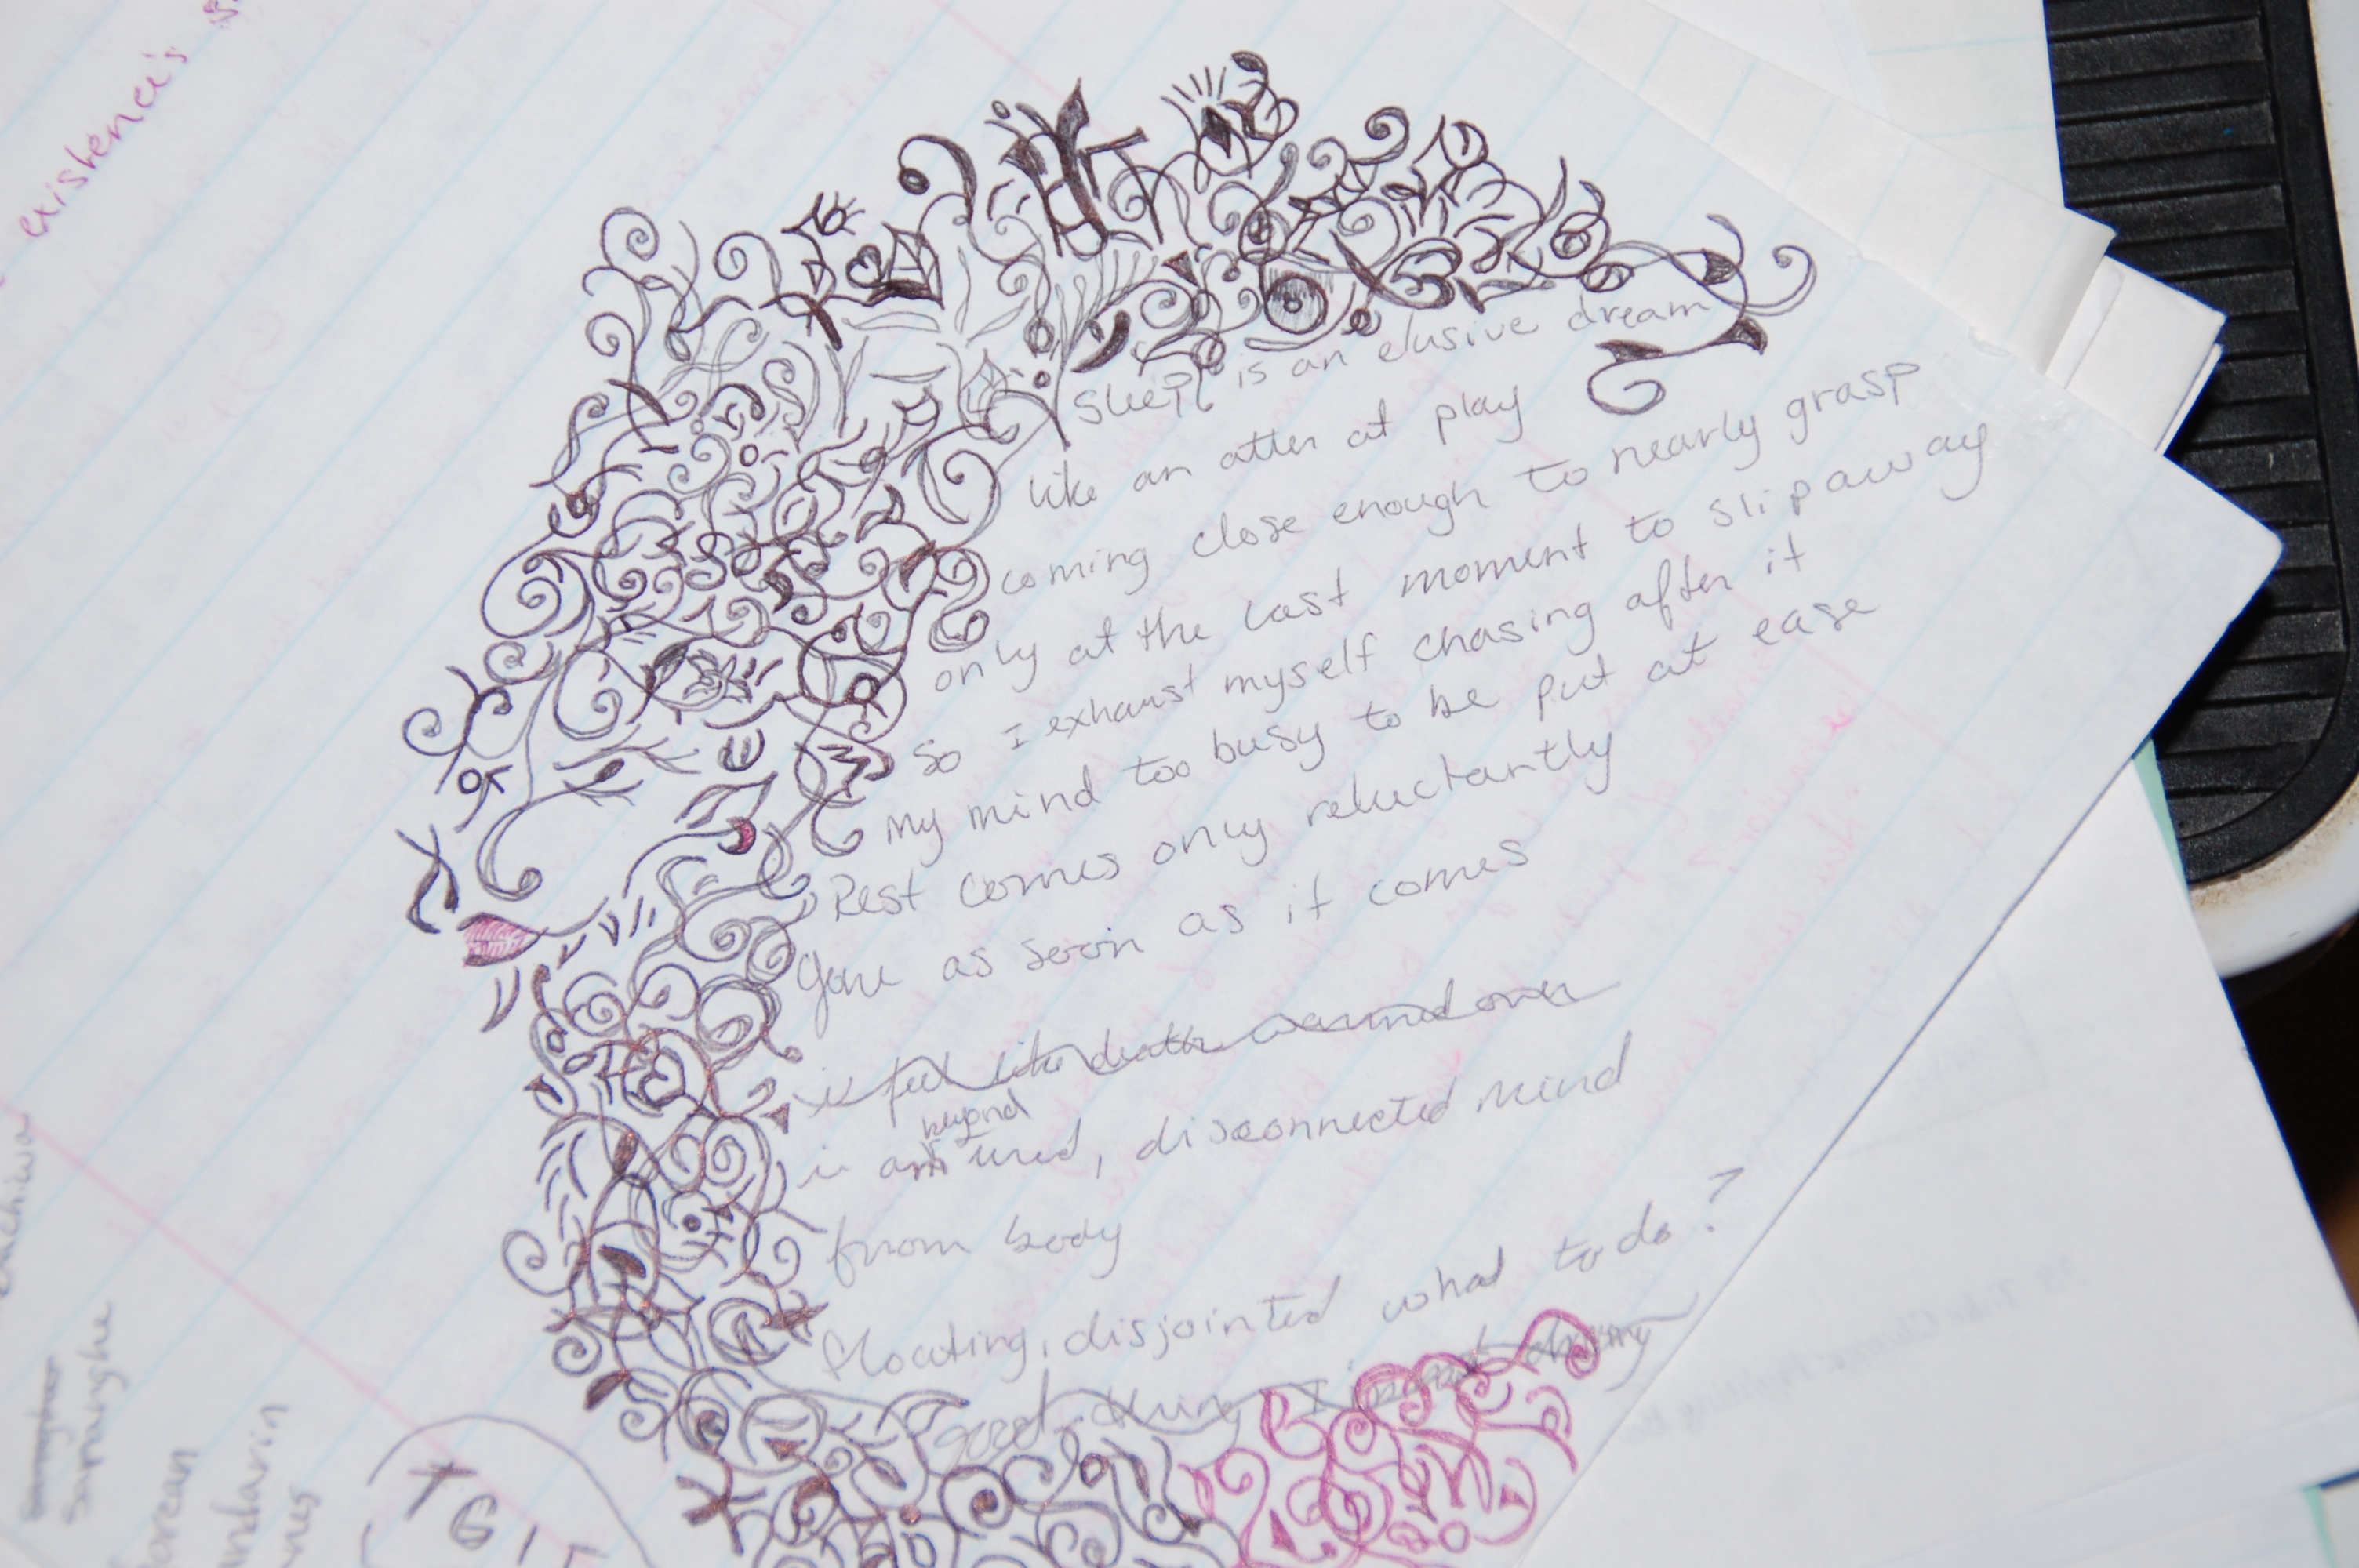 existence's
Sleep is an elusive dream
like an otter at play
coming close enough to nearly grasp
only at the last moment to slip away
so I exhaust myself chasing after it
my mind too busy to be put at ease
Rest comes only reluctantly
gone as soon as it comes
i feel like death warmed over
beyond
i am tired, disconnected mind
from body
floating, disjointed what to do?
good thing I
Samanghe